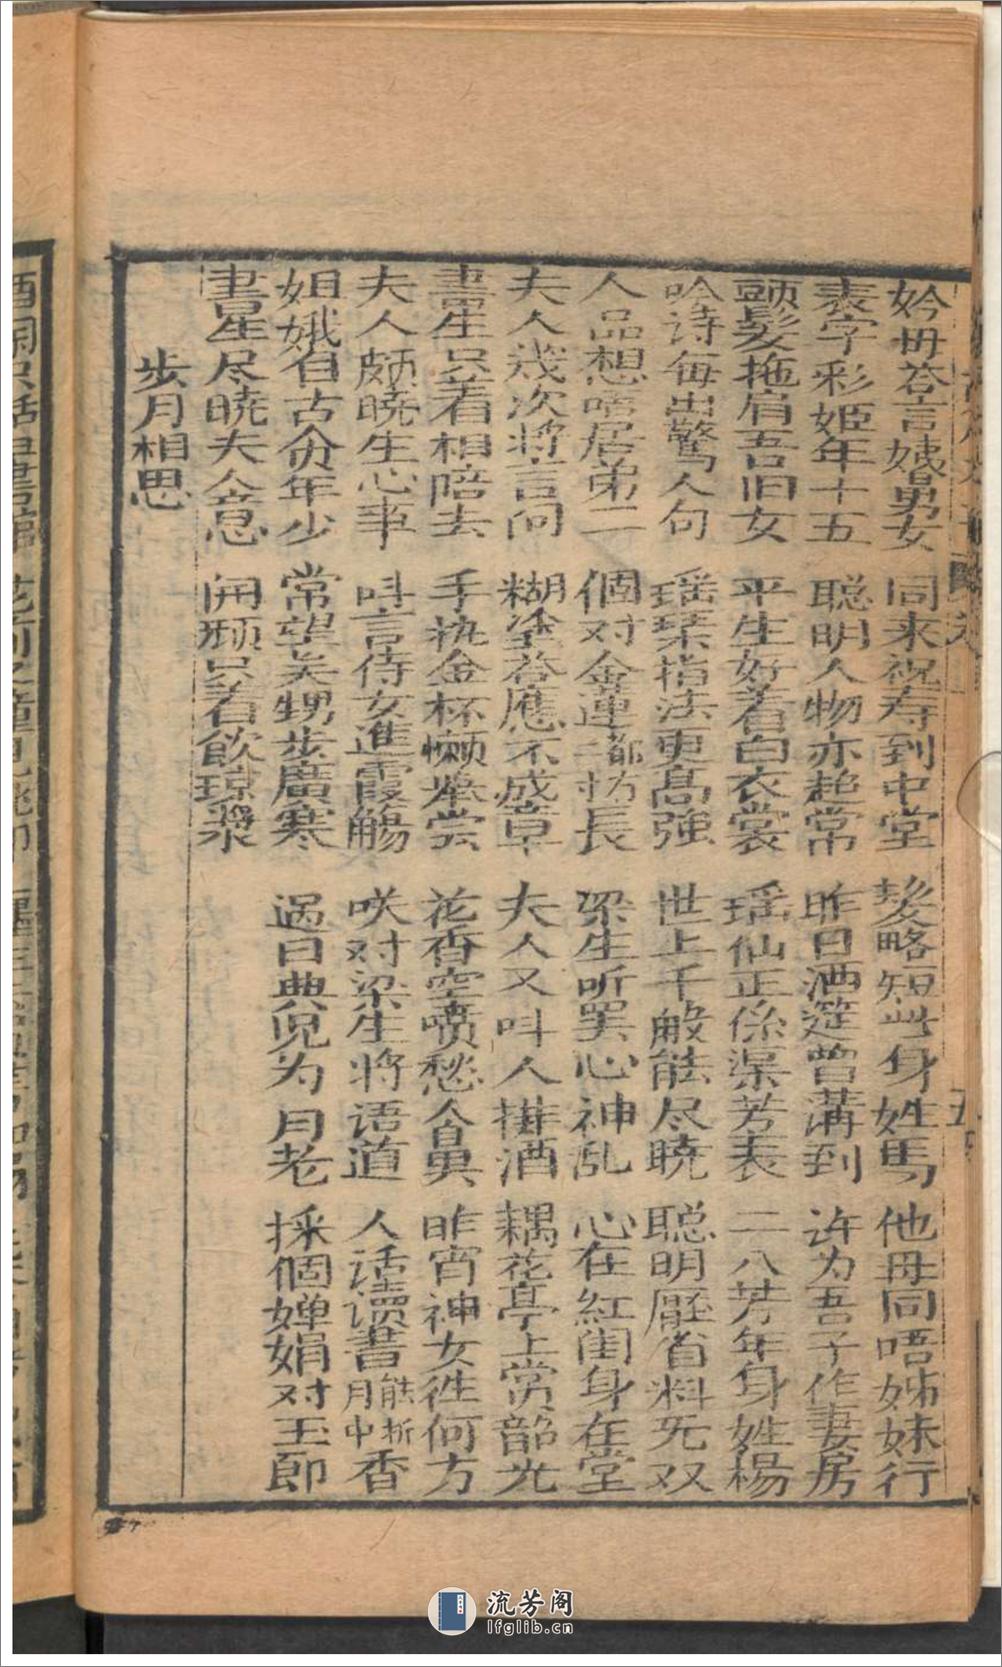 妗毋答言姨舅女 同来祝寿到中堂 髮略短些身姓馬 他毋同唔姊妹行
表字彩姬年十五 聪明人物亦超常 昨日酒筵曾講到 许为吾子作妻房
頭髮拖肩吾旧女 平生好着白衣裳 瑶仙正係渠芳表 二八芳年身姓楊
吟诗每出驚人句 瑶琴指法更高強 世上千般能尽晓 聪明壓省料无双
人品想唔居弟二 個对金蓮都冇一枋長 梁生听罢心神乱 心在紅闺身在堂
夫人幾次将言问 糊塗答應不成章 夫人又呌人排酒 耦花亭上赏韶光
書生只着相陪去 手执金杯懒举尝 花香空喷愁人鼻 昨宵神女徃何方
夫人颇晓生心事 呌言侍女進霞觴 咲对梁生将语道 人话读書能折月中香
姐娥自古贪年少 常望吴甥步廣寒 過日與兒为月老 採個婵娟对玉郎
書生尽晓夫人意 闲烦只着飲琼漿
步月相思
流芳阁
lfglib.cn